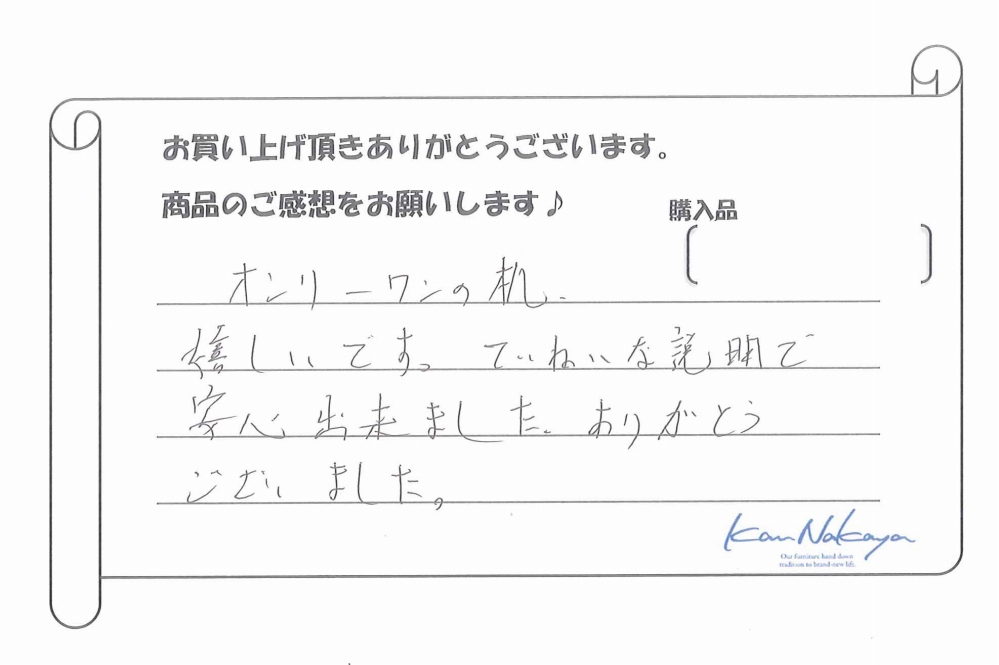 お買い上げ頂きありがとうございます。
商品のご感想をお願いします♪
購入品
オンリーワンの机、
嬉しいです。ていねいな説明で
安心出来ました。ありがとう
ございました。
Kan Nakaya
Our furniture hand down
tradition to brand-new life.